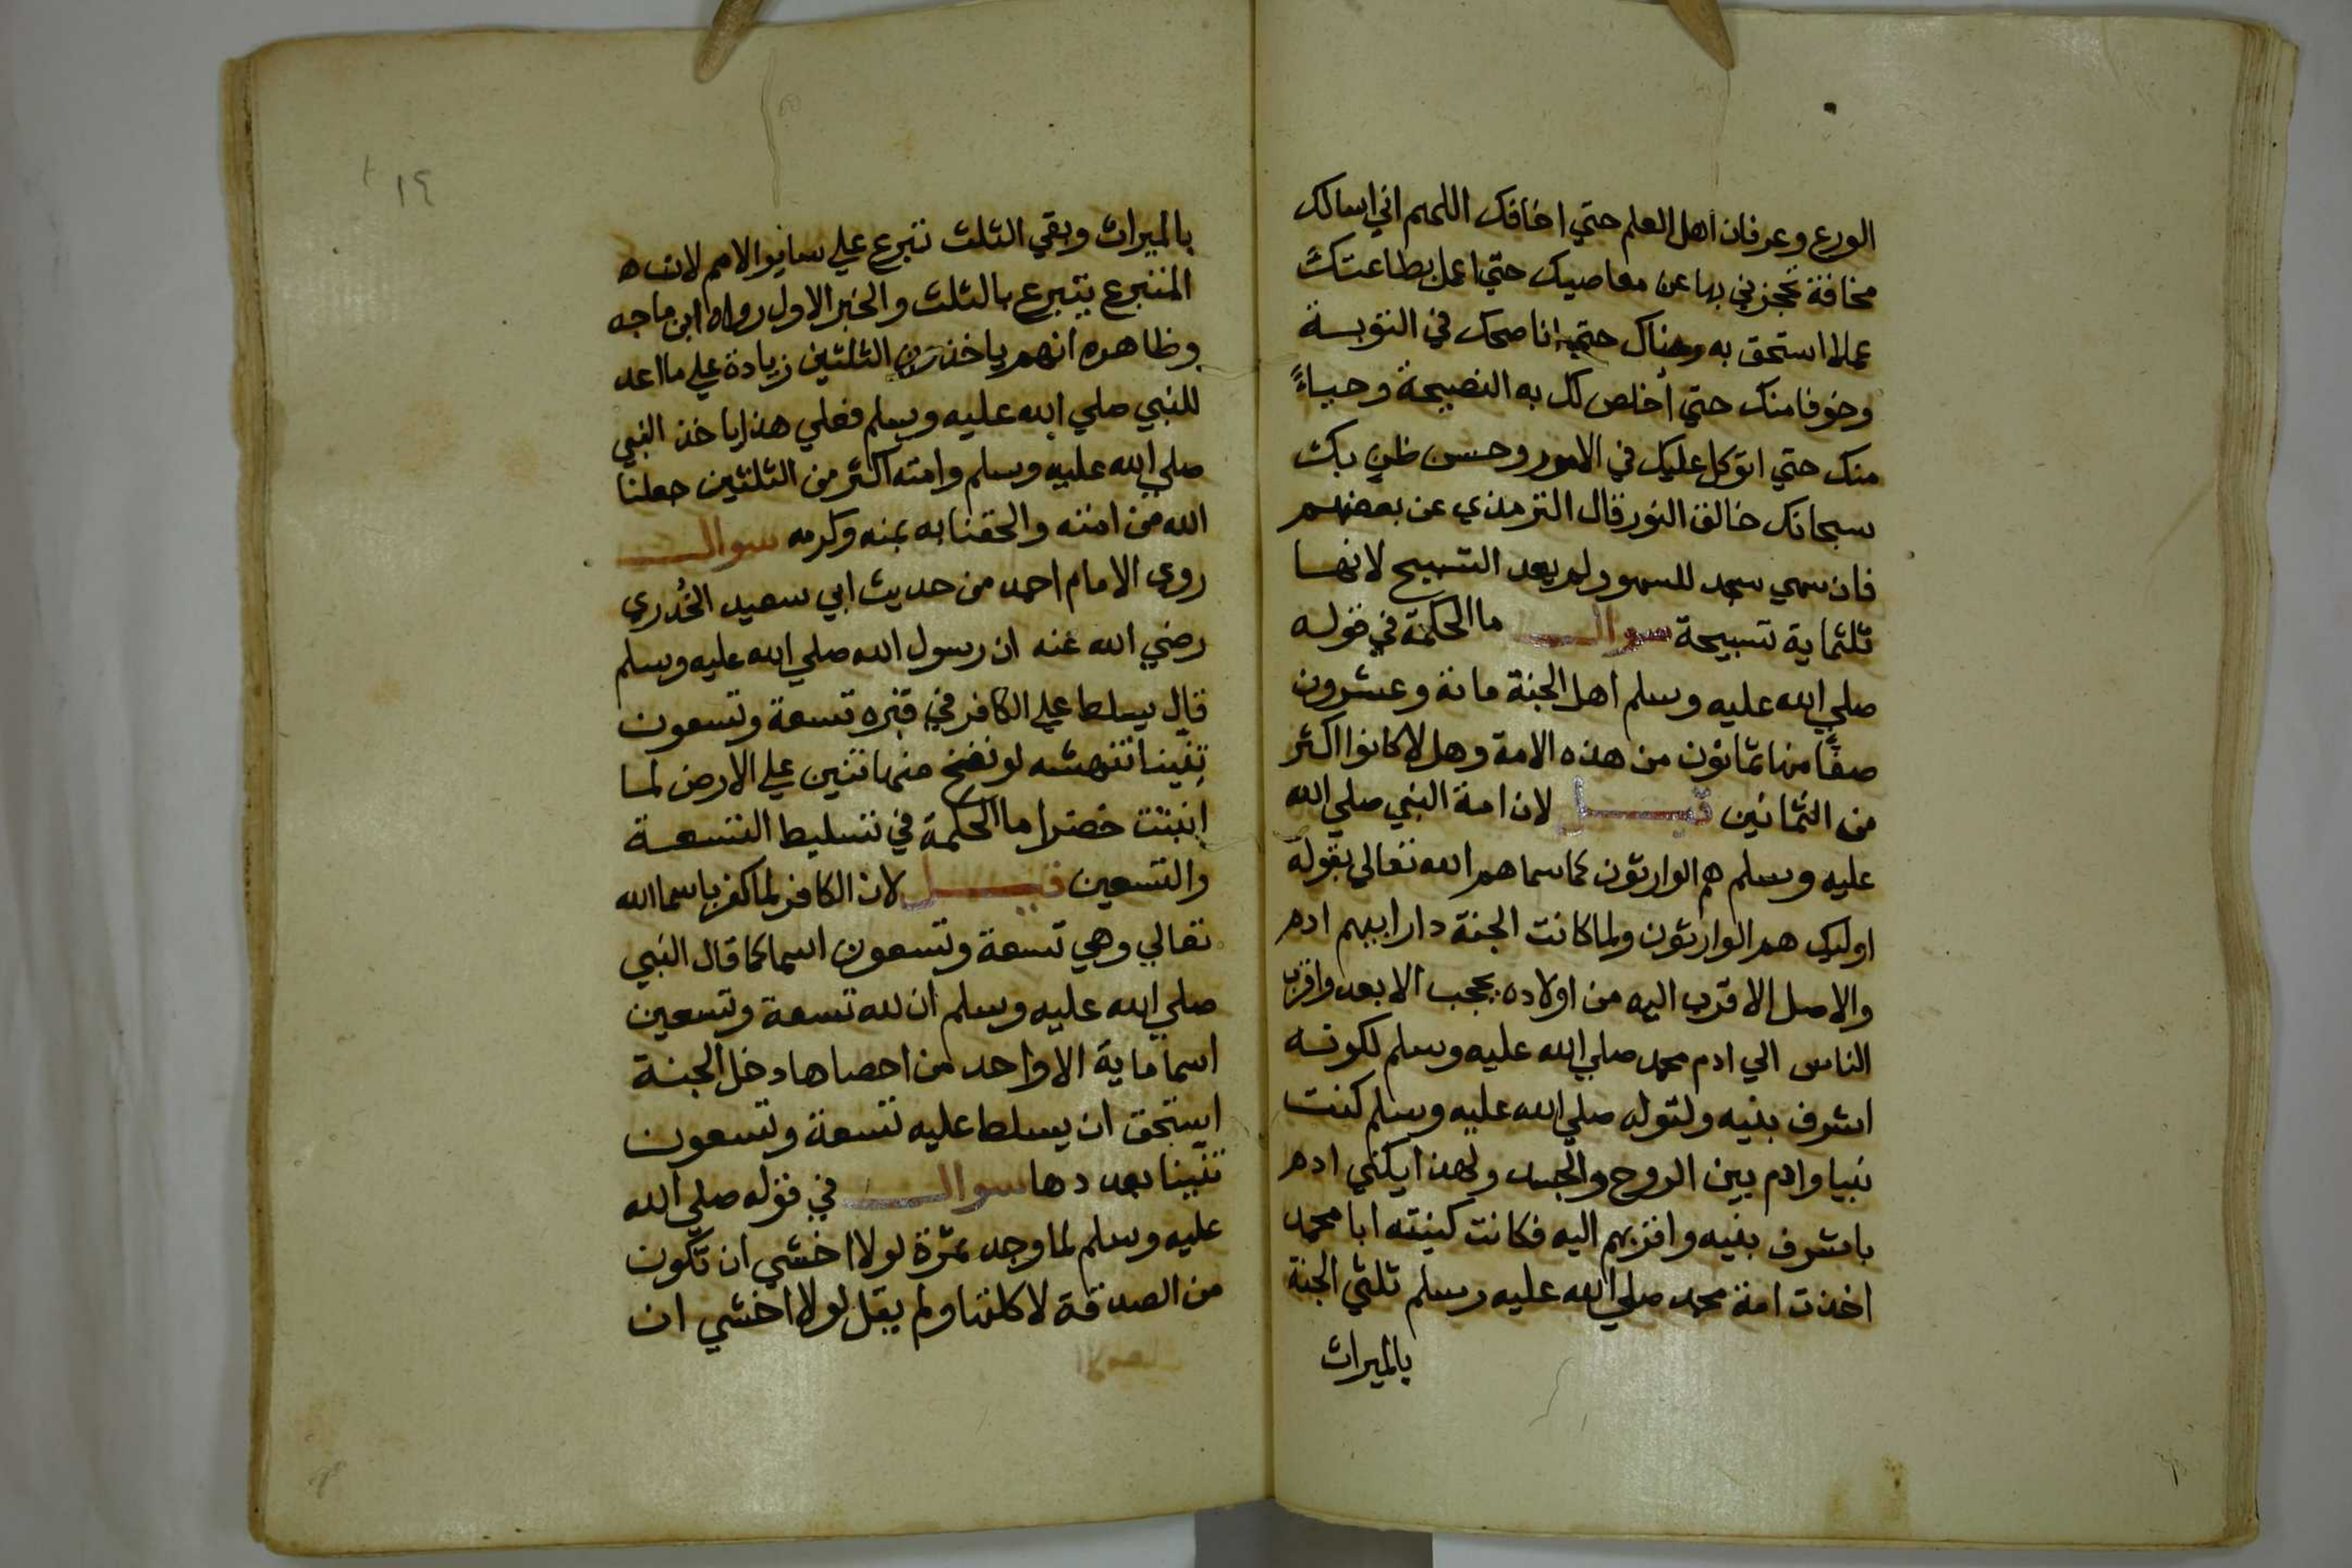 الورع وعرفان اهل العلم حتي اخافك اللهم اني اسالك
مخافة تحجزني بها عن معاصيك حتي اعمل بطاعتك
عملا استحق به رضاك حتي اناصحك في التوبة
وخوفا منك حتي اخلص لك به النصيحة وحياءً
منك حتي اتوكل عليك في الامور وحسن ظن بك
سبحانك خالق النور قال الترمذي عن بعضهم
فان سهي سجد للسهو ولم يعد التسبيح لانها
ثلثماية تسبيحة سوال ما الحكمة في قوله
صلي الله عليه وسلم اهل الجنة مائة وعشرون
صفًا منها ثمانون من هذه الامة وهل لا كانوا اكثر
من الثمانين قيل لان امة النبي صلي الله
عليه وسلم هم الوارثون كما سماهم الله تعالي بقوله
اوليك هم الوارثون ولما كانت الجنة دار ابيهم ادم
والاصل الاقرب اليه من اولاده يحجب الابعد واقرب
الناس الي ادم محمد صلي الله عليه وسلم لكونه
اشرف بنيه ولقوله صلي الله عليه وسلم كنت
نبيا وادم بين الروح والجسد ولهذا يكني ادم
باشرف بنيه واقربهم اليه فكانت كنيته ابا محمد
اخذت امة محمد صلي الله عليه وسلم ثلثي الجنة
بالميراث
١٩
بالميراث وبقي الثلث تتبرع علي سائر الامم لان
المتبرع يتبرع بالثلث والخبر الاول رواه ابن ماجه
وظاهره انهم ياخذون الثلثين زيادة علي ما اعد
للنبي صلي الله عليه وسلم فعلي هذا ياخذ النبي
صلي الله عليه وسلم وامته اكثر من الثلثين جعلنا
الله من امته والحقنا به بمنه وكرمه سوال
روي الامام احمد من حديث ابي سعيد الخُدري
رضي الله عنه ان رسول الله صلي الله عليه وسلم
قال يسلط علي الكافر في قبره تسعة وتسعون
تِنّينا تنهشه لو نفخ منها تنين علي الارض لما
انبتت خضرا ما الحكمة في تسليط التسعة
والتسعين قيل لان الكافر لما كفر باسما الله
تعالي وهي تسعة وتسعون اسما كما قال النبي
صلي الله عليه وسلم ان لله تسعة وتسعين
اسما ماية الا واحد من احصاها دخل الجنة
استحق ان يسلط عليه تسعة وتسعون
تنينا بعددها سوال في قوله صلي الله
عليه وسلم لما وجد تمرة لولا اخشي ان تكون
من الصدقة لاكلتها ولم يقل لولا اخشي ان